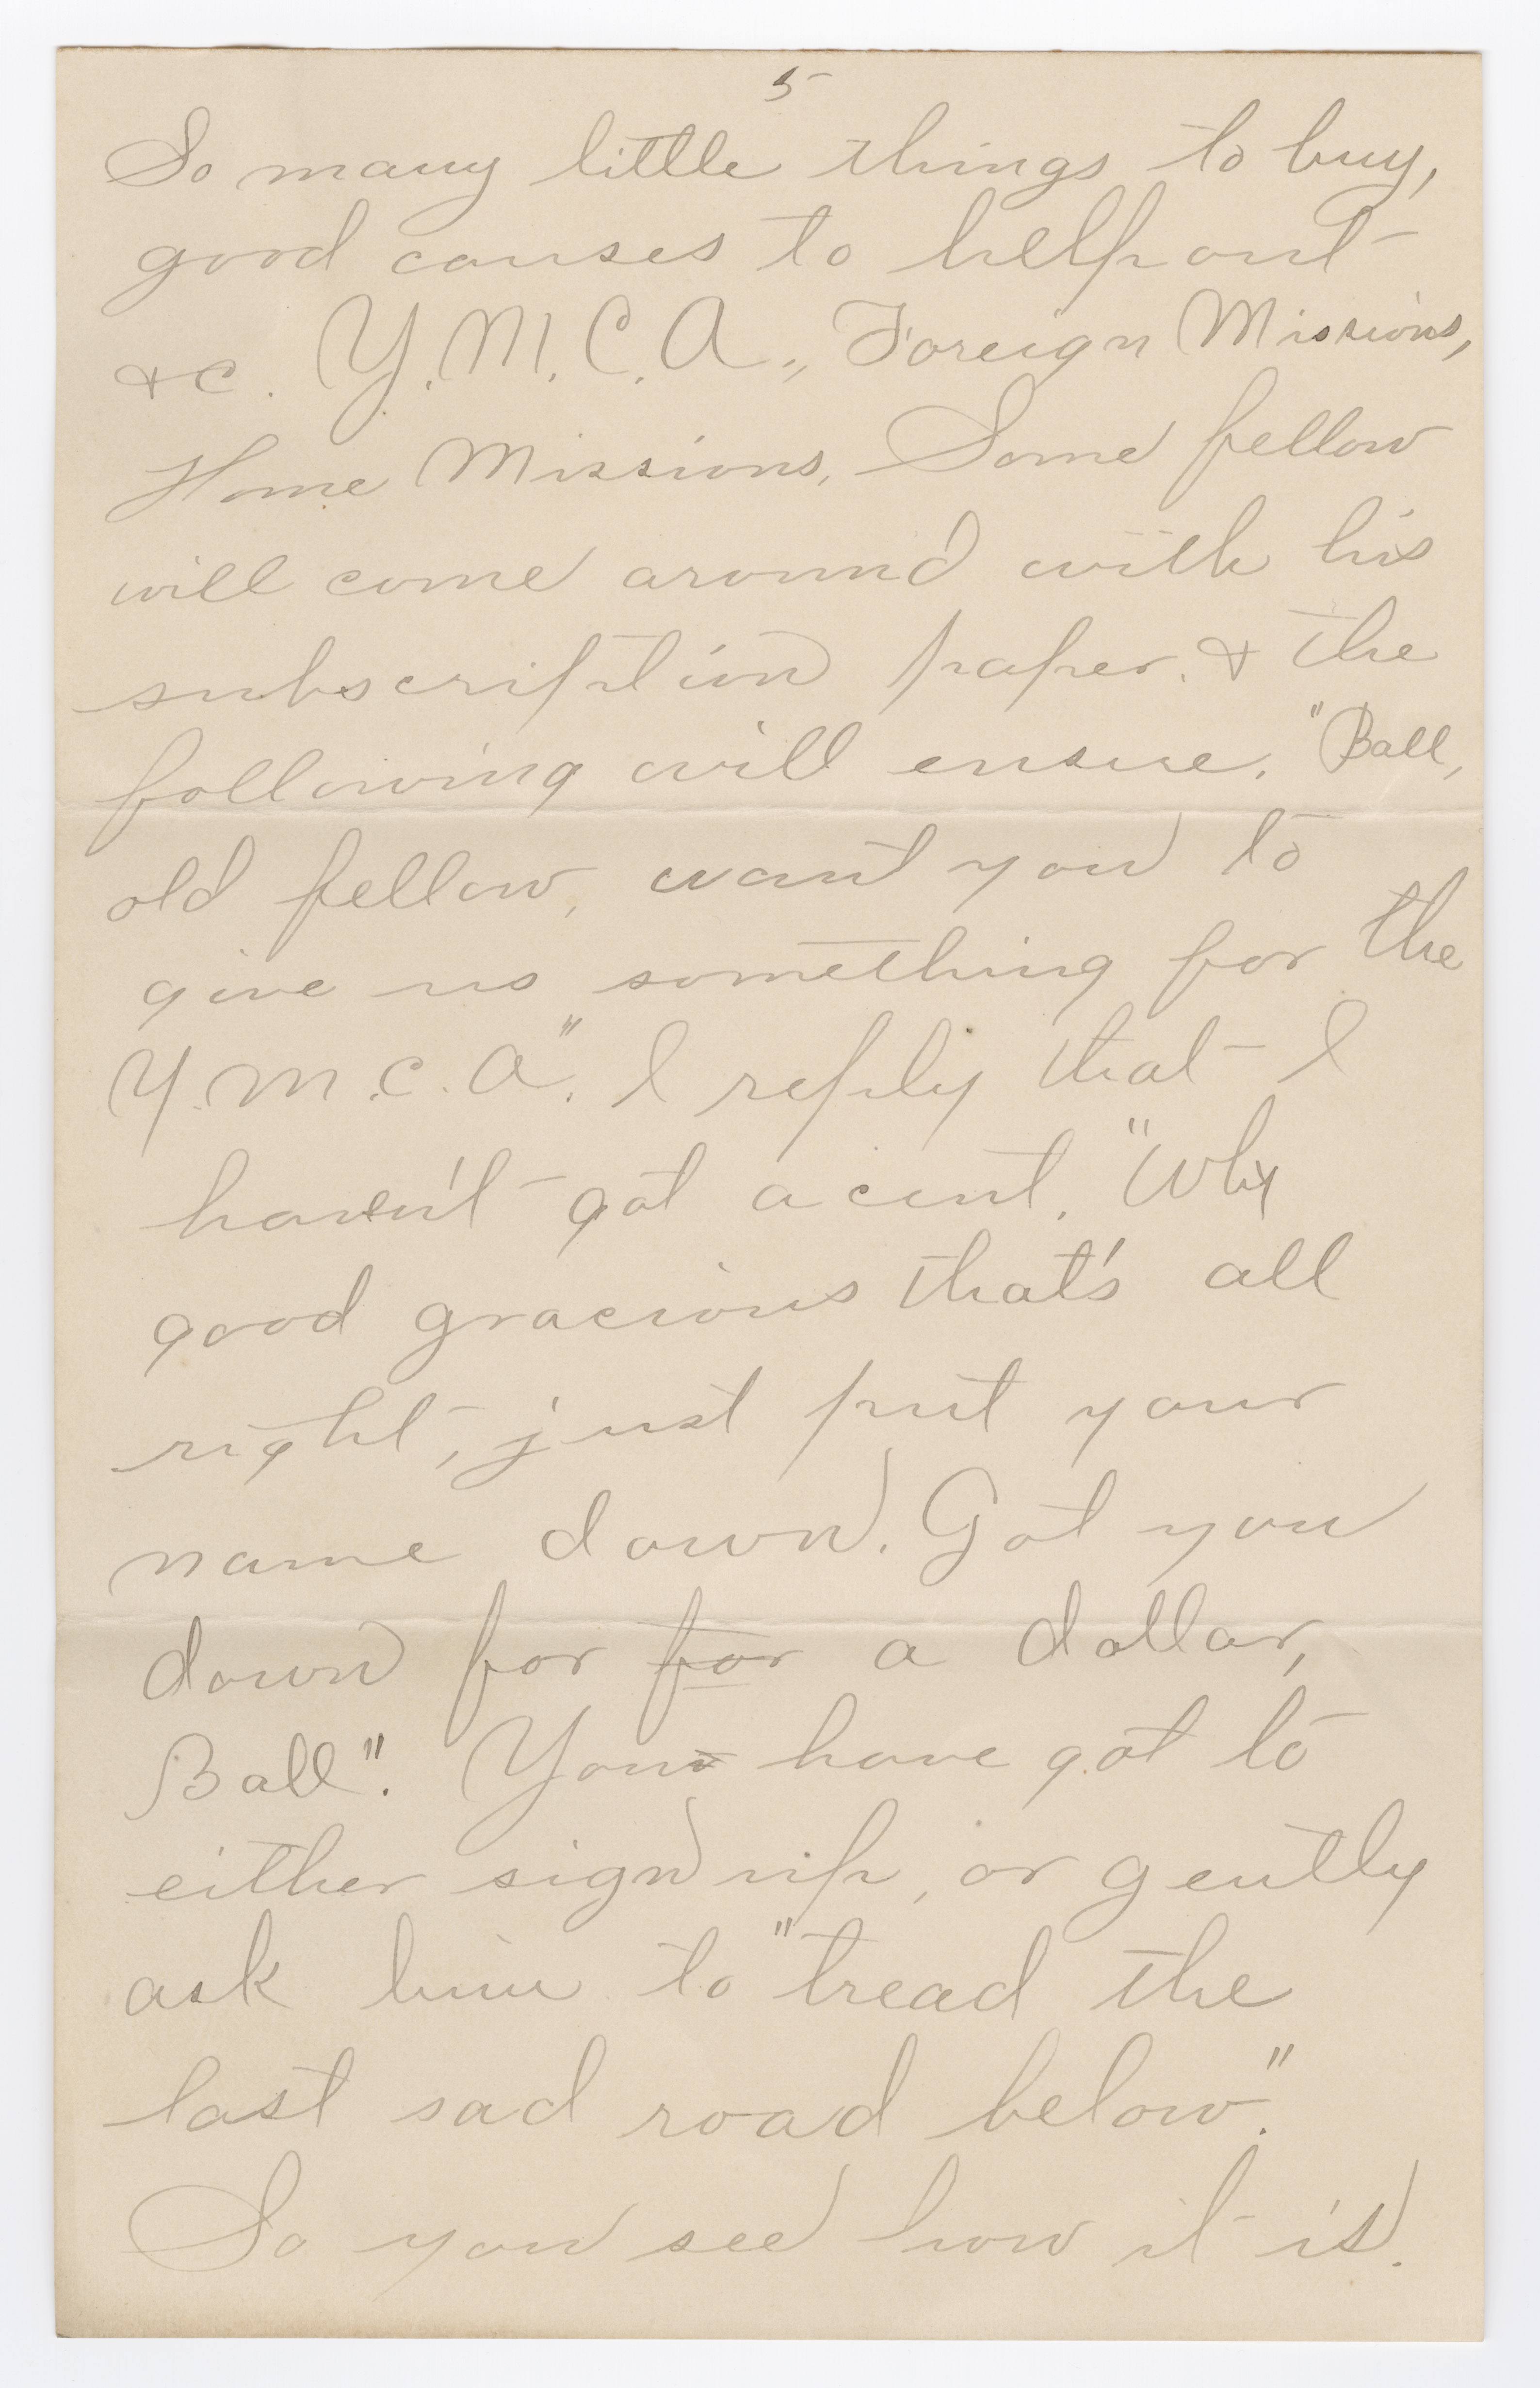 5
So many little things to buy,
good causes to help out
&c. Y.M.C.A., Foreign Missions,
Home Missions, Some fellow
will come around with his
subscription paper. & the
following will ensue. "Ball,
old fellow, want you to
give us something for the
Y.M.C.A". I reply that I
haven't got a cent. "Why
good gracious that's all
right, just put your
name down. Got you
down for for a dollar,
Ball". You have got to
either sign up, or gently
ask him to "tread the
last sad road below".
So you see how it is.